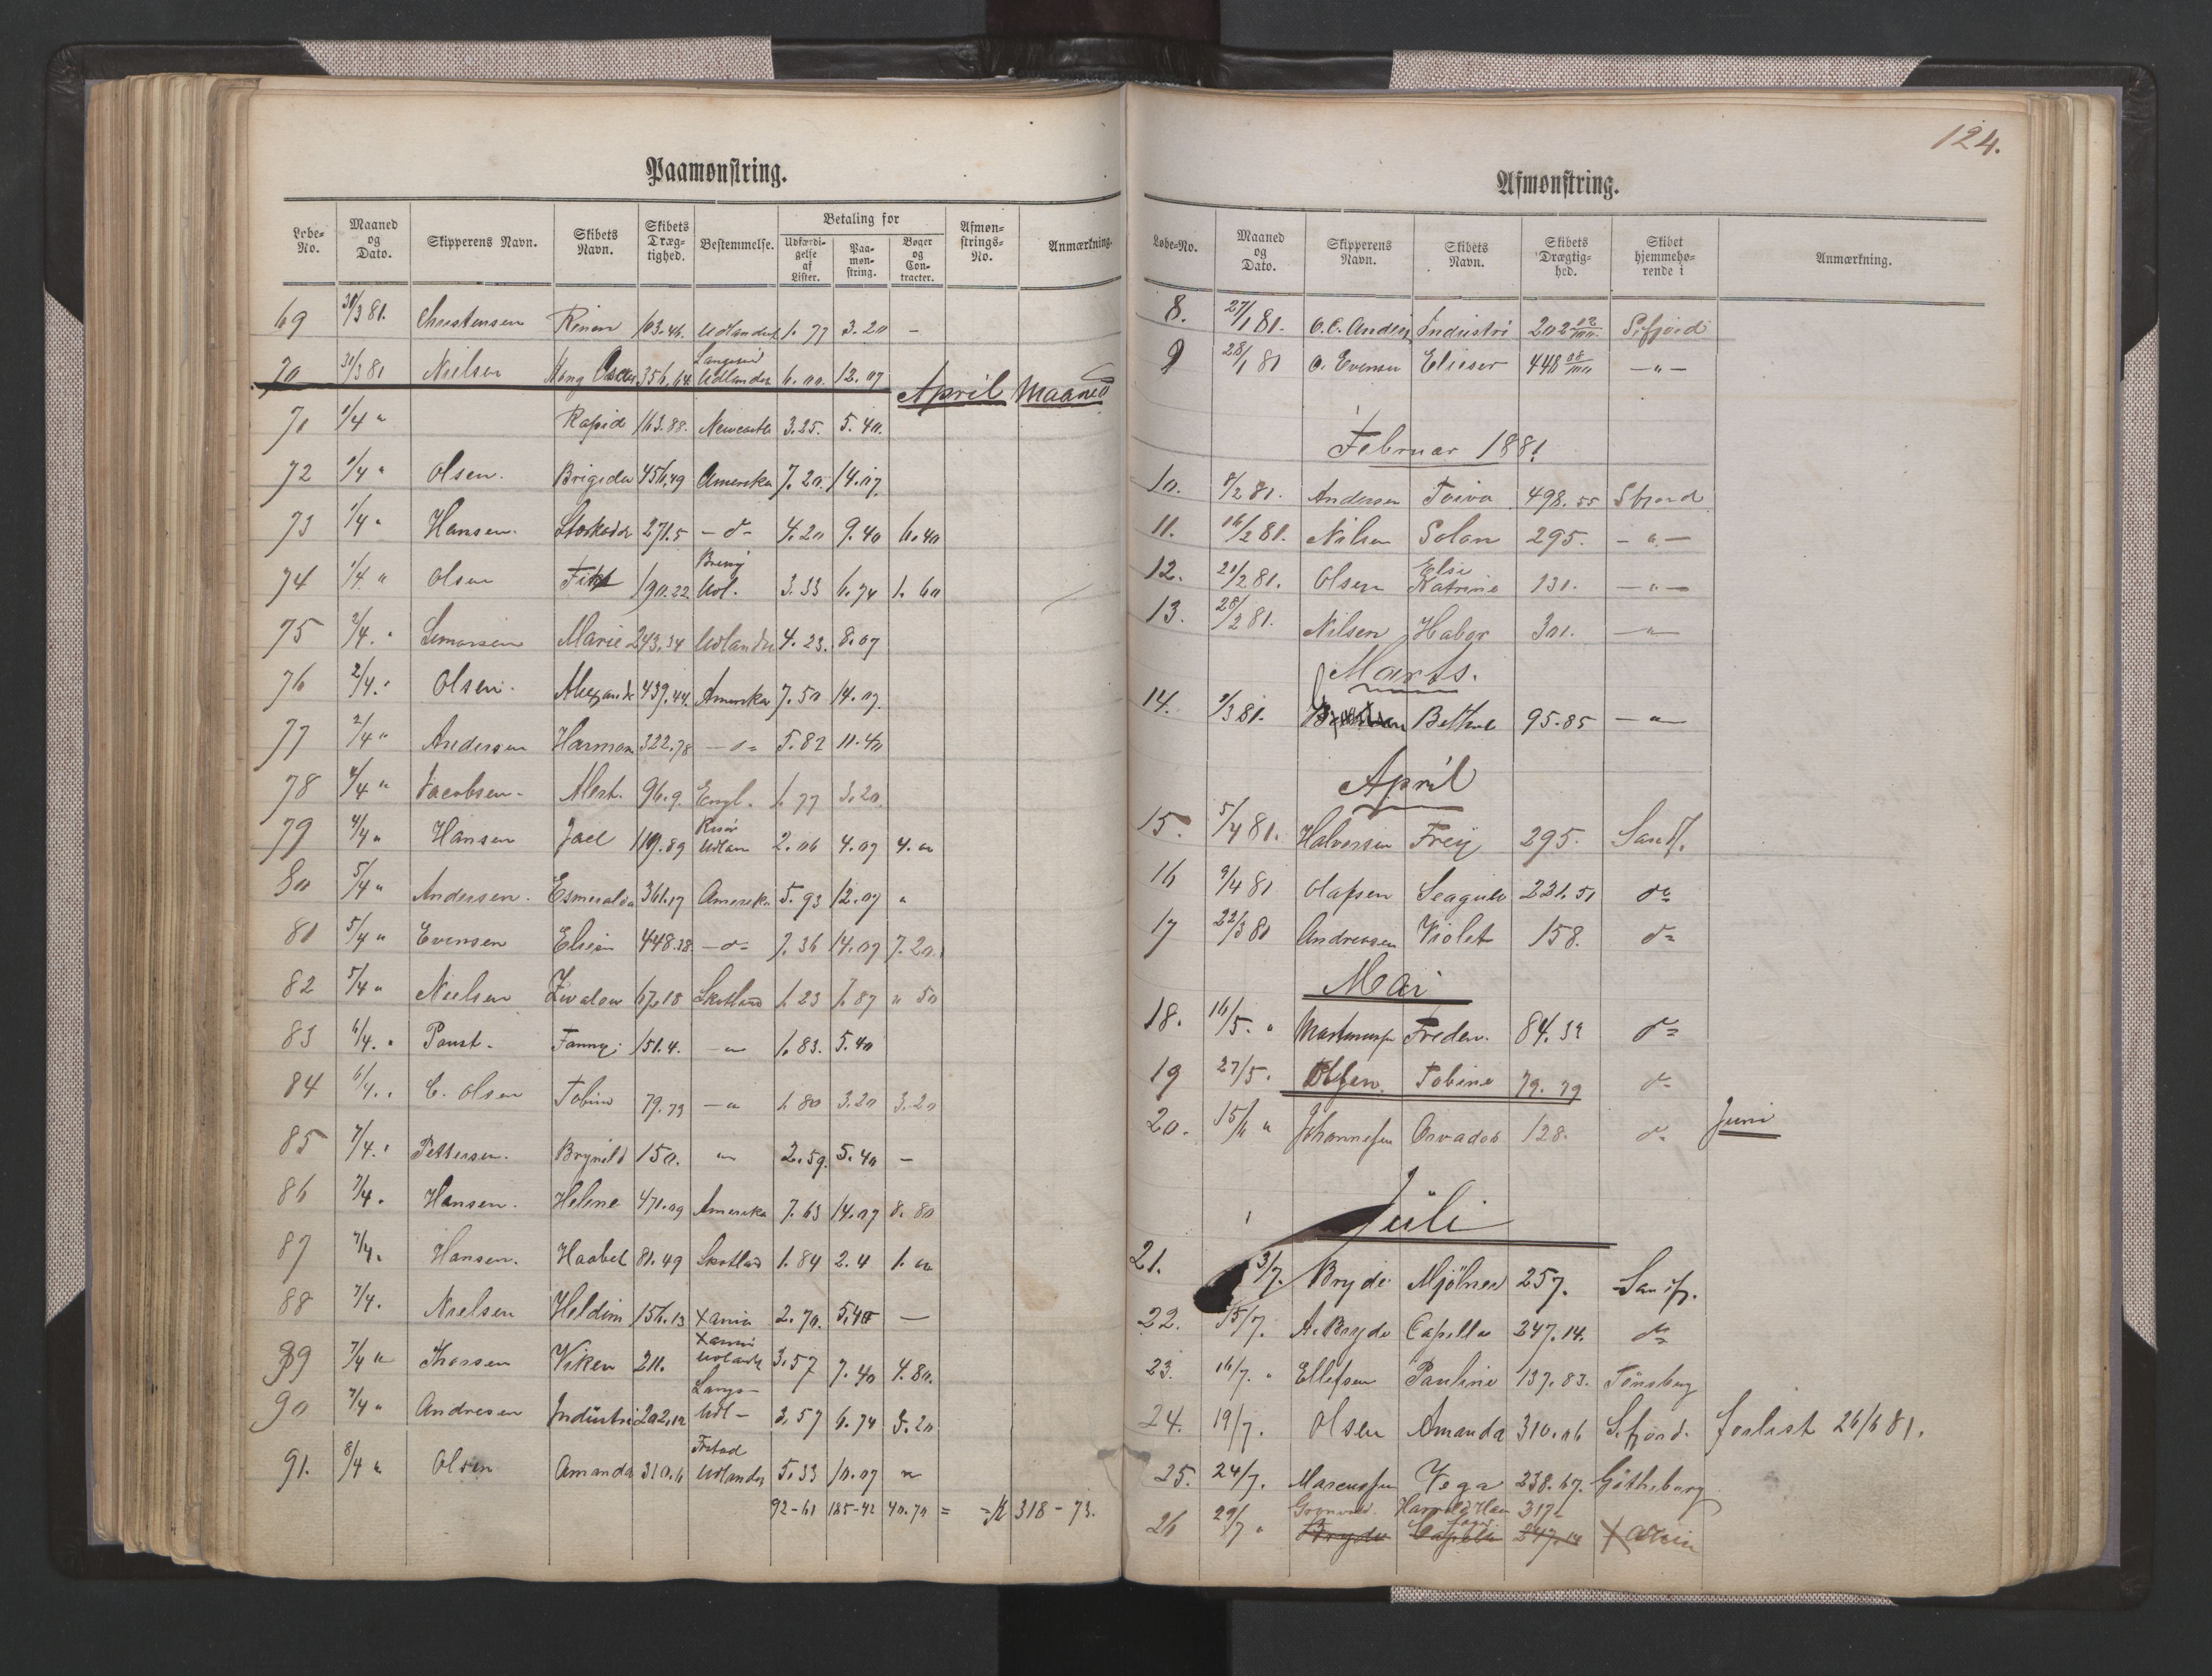 Paamønstring.
Løbe-No. | Maaned og Dato. | Skipperens Navn. | Skibets Navn. | Skibets Dræg-tighed. | Bestemmelse. | Betaling for | Udfærdi-gelse af Lister. | Paa-møn-string. | Bøger og Con-tracter. | Afmøn-strings-No. | Anmærkning.
69 31/3 81. Christensen 103.46. Udlandet 1. 77 3. 20 -
70 31/3 81 Nielsen Kong Oscar 356.64 Udlandet 6.00. 12. 07
April Maaned
71 1/4 " Rapid 163.88. Newcastle 3.25. 5. 40.
72 1/4 " Olsen. Brigida 456.49 Amerika 7. 20. 14.07.
73 1/4 " Hansen. 271.5 - d - 4.20 9. 40 6.40
74 1/4 " Olsen 190.22 Udl. 3.33 6.74 1. 60
75 2/4. " Marie 243.34 Udlandet 4. 23. 8.07
76 2/4. " Olsen. Alexandr 439.44. Amerika 7. 50 14. 07.
77 2/4 " Andersen Harmoni 322.78 - d = 5. 82 11. 40
78 4/4 " Jacobsen - Alert. 96.9. Engl. 1. 77 3. 20.
79 4/4 " Hansen Jael 119.89 Risør Udlan 2. 06 4. 07 4. 00
80 5/4 " Andersen. Esmeralda 361.17 Amerika 5. 93 12. 07 "
81 5/4 " Evensen 448.38. - d = 7. 36 14. 07 7. 20.
82 5/4 " Nielsen 67.18 Skotland 1. 23 1. 87 " 50
83 6/4. " Paust. Fanny. 151.4. - " 1. 83. 5. 40
84 6/4. " C. Olsen Tobine 79.79 - " 1. 80 3. 20 3. 20
85 7/4. " Pettersen. Brynild 150. " 2. 59. 5. 40 -
86 7/4. Hansen. Helene 471.09 Amerika 7. 63 14. 07 8. 80
87 7/4. Hansen. Haabet 81.49 Skotland 1. 84 2. 4 1. 00
88 7/4. Nielsen Heldin 156.13 Xania 2. 70. 5.40 -
89 7/4 " Viken 211. Xania Udlandet 3.57 7. 40 4. 80.
90 7/4 " Andresen Industri 202.12 Lang- Udl - 3. 57 6. 74 3. 20
91. 8/4 " Olsen Amanda 310.6 Frstad Udlandet 5. 33 10. 07 "
92-61 185-42 40.70 = -K 318 - 73.
124.
Afmønstring.
Løbe-No. | Maaned og Dato. | Skipperens Navn. | Skibets Navn. | Skibets Drægtig-hed. | Skibet hjemmehø-rende i | Anmærkning.
8. 27/1 81. O.C. Anders Industri 202 12/100. S.fjord
9 28/1 81 O. Evensen Elieser 448 38/100 - " -
Februar 1881
10. 8/2 81. Andersen Toivo 498.55 Sfjord
11. 16/2 81. Nilsen Solon 295. - " -
12. 21/2 81. Olsen Elsi Katrine 131. - " -
13. 28/2 81. Nilsen Habor 301. - " -
Marts.
14. 2/3 81. 95.85 - " -
April
15. 5/4 81. Halversen Frey 295. Sandf.
16 9/4 81 Olafsen Seagull 221.51 do
17 22/3 81 Andressen Violet 158. d =
Mai
18. 16/5. " Freden. 84.32 d =
19 27/5. Olsen. Tobine 79. 79 d =
20. 15/6 " Johannesen 128. d = Juni
Juli
21. 3/7. Bryde Mjölner 257. Sandf.
22. 15/7. A. Bryde Capella 247.14. do
23. 16/7. " Ellefsen Pauline 137. 83. Tönsberg
24. 19/7. Olsen Amanda 310.06 S.fjord. forlist 26/6 81.
25. 24/7. Marcussen Vega 238.67. Götheborg
26 29/7 " Grønvold. Harald Haar fager. 317
Bryde Capella 247.14 Xania